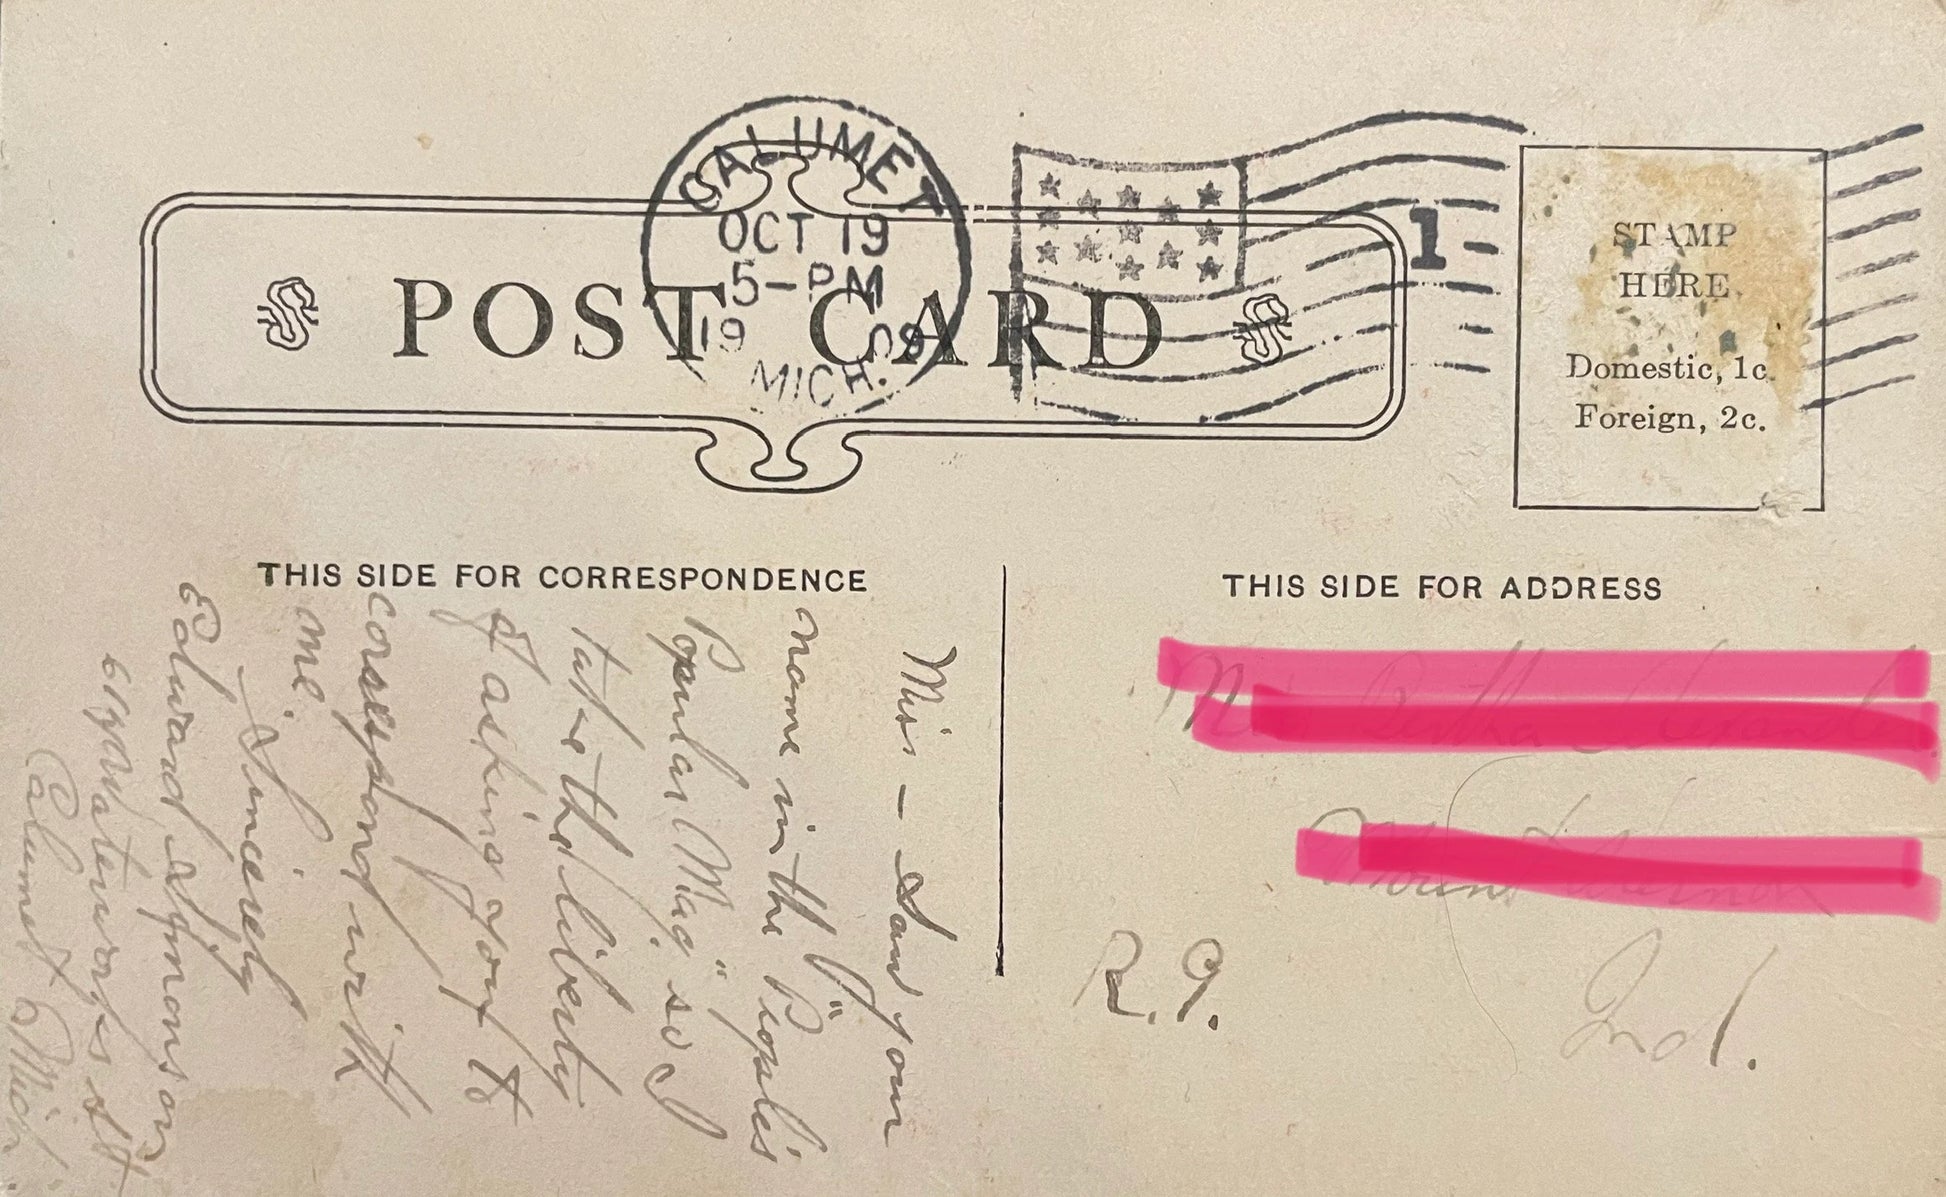 CALUMET
OCT 19
5-PM
19 09
MICH.
1
POST CARD
STAMP
HERE
Domestic, 1c.
Foreign, 2c.
THIS SIDE FOR CORRESPONDENCE
Miss – Saw your
name in the "People's
Popular Mag," so I
take the liberty
of asking you to
correspond with
me.
Sincerely
Edward Symonson
Waterworks St
Calumet Mich.
THIS SIDE FOR ADDRESS
R.9.
Ind.